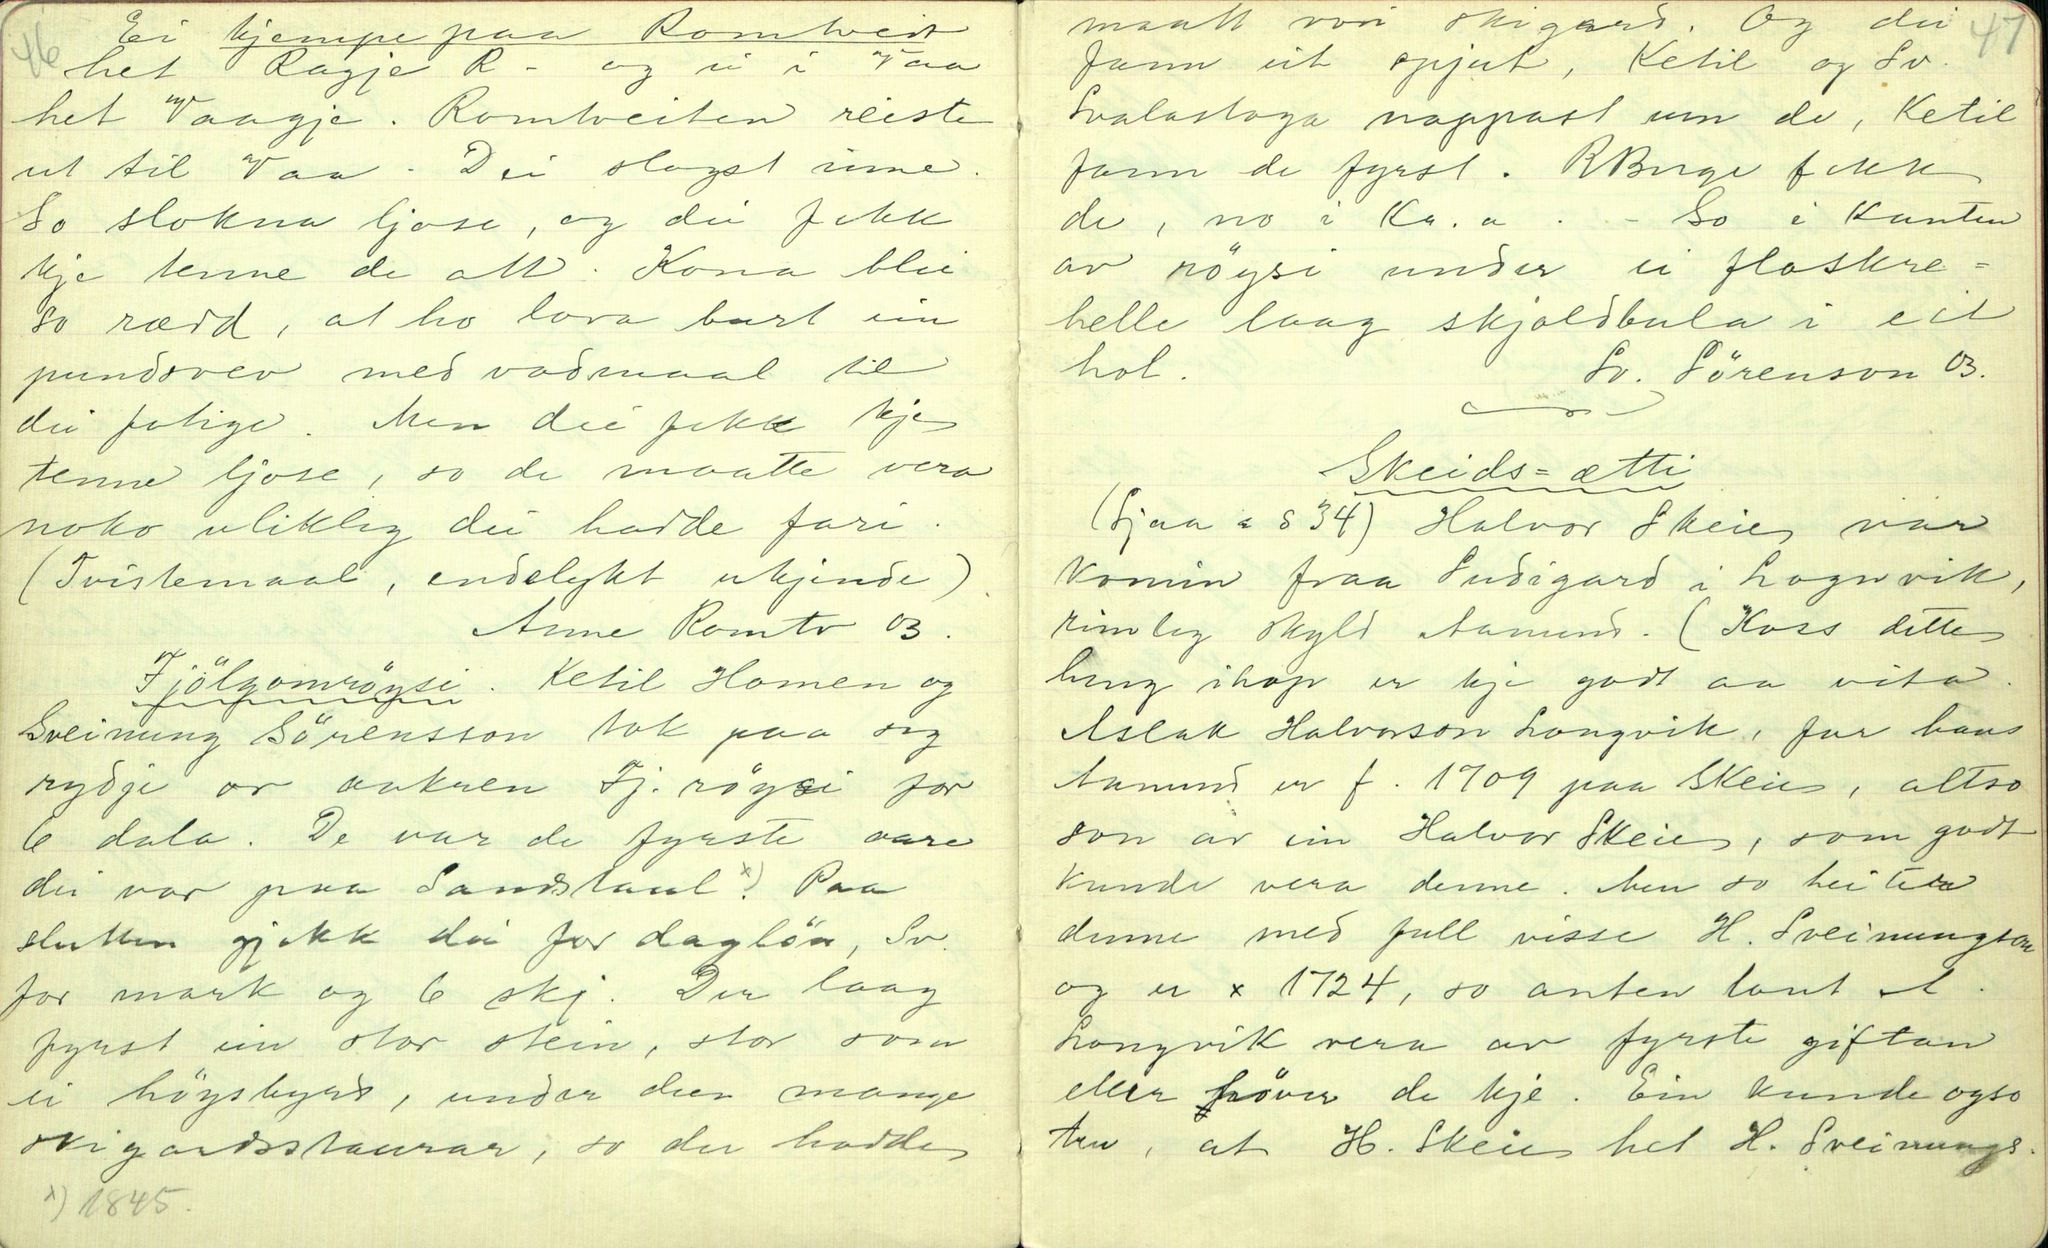 46
Ei kjempe paa Romtveit
het Ragje R - og ei i Vaa
het Vaagje. Romtveiten reiste
ut til Vaa. Dei slogst inne.
So slokna ljose, og dei fekk
kje tenne de att. Kona blei
so rædd, at ho lova burt ein
pundsvev med vadmaal til
dei fatige. Men dei fekk kje
tenne ljose, so de maatte vera
noko ulikleg dei hadde fari.
(Tvistemaal, endelykt ukjende)
Anne Romtv 03.
Fjölgomröysi. Ketil Homen og
Sveinung Sörensson tok paa seg
rydje or aakren Fj. röysi for
6 dala. De var de fyrste aare
dei var paa Sandstaul x). Paa
slutten gjekk dei for daglön, Sv.
for mark og 6 skj. Der laag
fyrst ein stor stein, stor som
ei höysbyrd, under den mange
skigardsstaurar, so der hadde
x) 1845.
47
maatt vori skigard. Og dei
fann eit spjut, Ketil og Sv.
Svalastoga nappast um de, Ketil
fann de fyrst. RBerge fekk
de, no i Kr.a. - So i kanten
av röysi under ei flaskre=
helle laag skjoldbula i eit
hol.
Sv. Sörenson 03.
Skeids=ætti
(Sjaa s 34) Halvor Skeie var
komin fraa Sudigard i Lognvik,
rimleg skyld Aamund. (Koss dette
heng ihop er kje godt aa vita.
Aslak Halvorson Longvik, far hans
Aamund er f. 1709 paa Skeie, altso
son av ein Halvor Skeie, som godt
kunde vera denne. Men so heiter
denne med full visse H. Sveinungson
og er x 1724, so anten laut A.
Longvik vera av fyrste giftan
eller höver de kje. Ein kunde ogso
tru, at H. Skeie het H. Sveinungs.